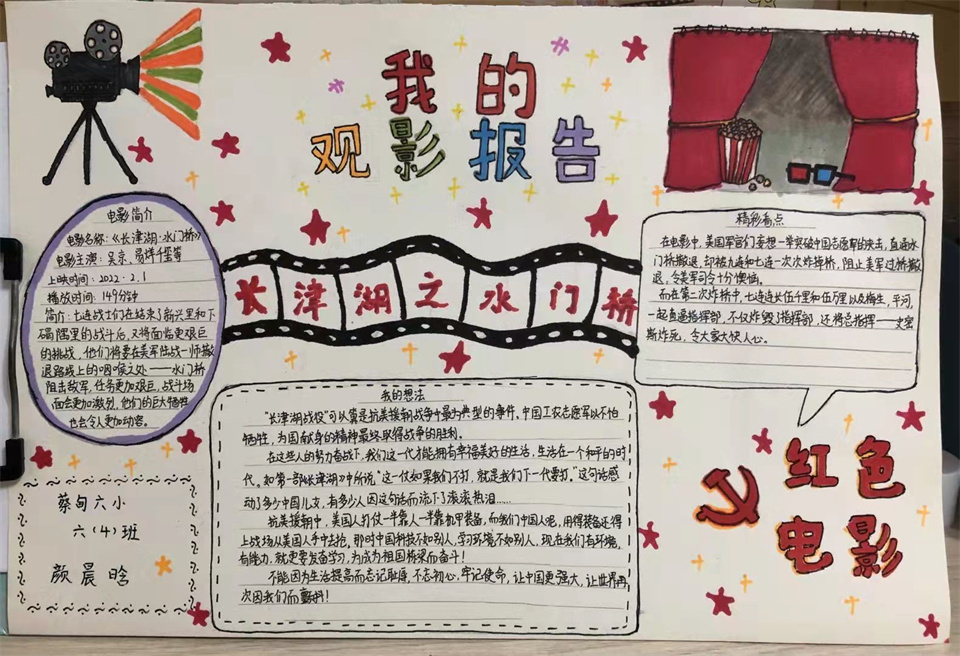 我的
观影报告
电影简介
电影名称:《长津湖·水门桥》
电影主演:吴京、易烊千玺等
上映时间:2022.2.1
播放时间:149分钟
简介:七连战士们在结束了新兴里和下
碣隅里的战斗后,又将面临更艰巨
的挑战,他们将要在美军陆战一师撤
退路线上的咽喉之处——水门桥
阻击敌军,任务更加艰巨,战斗场
面会更加激烈,他们的巨大牺牲
也会令人更加动容。
长津湖之水门桥
精彩看点
在电影中,美国军官们妄想一举突破中国志愿军的夹击,直逼水
门桥撤退,却被九连和七连一次次炸掉桥,阻止美军过桥撤
退,令美军司令十分懊恼。
而在第二次炸桥中,七连连长伍千里和伍万里以及梅生、平河,
一起直逼指挥部,不仅炸毁了指挥部,还将总指挥——史密
斯炸死,令大家大快人心。
我的想法
"长津湖战役"可以算是抗美援朝战争中最为典型的事件,中国工农志愿军以不怕
牺牲,为国献身的精神最终取得战争的胜利。
在这些人的努力奋战下,我们这一代才能拥有幸福美好的生活,生活在一个和平的时
代。如第一部《长津湖》中所说"这一仗如果我们不打,就是我们下一代要打。"这句话感
动了多少中国儿女,有多少人因这句话而流下了滚滚热泪……
抗美援朝中,美国人打仗一半靠人一半靠机甲装备,而我们中国人呢,用得装备还得
上战场从美国人手中去抢,那时中国科技不如别人,学习环境不如别人,现在我们有环境,
有能力,就更要发奋学习,为成为祖国桥梁而奋斗!
不能因为生活提高而忘记耻辱,不忘初心,牢记使命,让中国更强大,让世界再
次因我们而颤抖!
红色
电影
蔡甸六小
六(4)班
颜晨晗